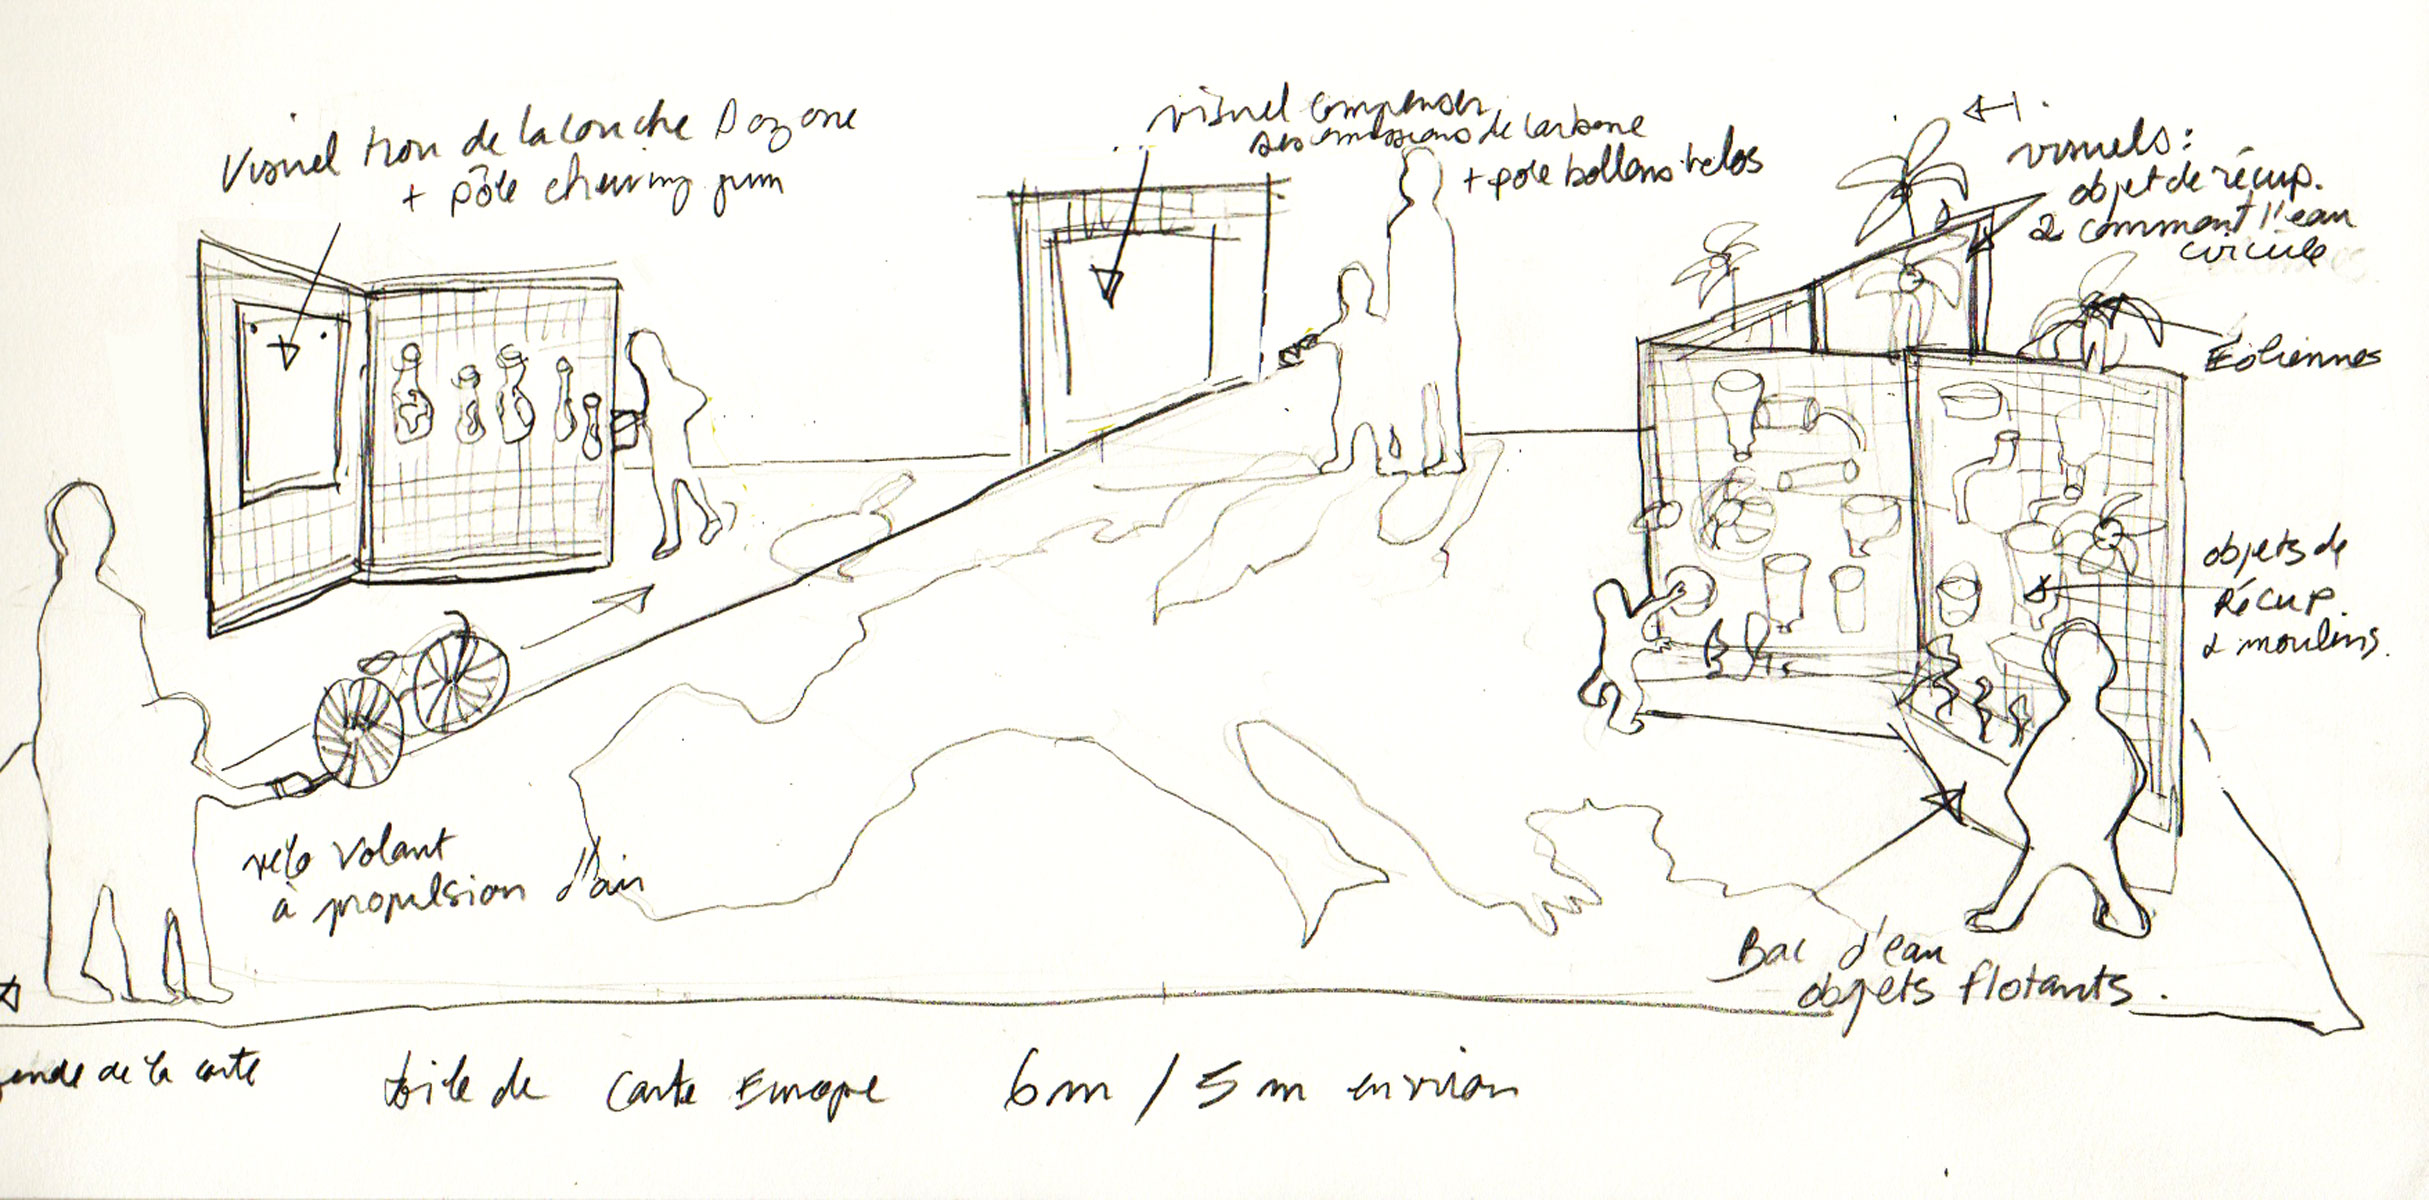 Visuel trou de la couche D'ozone
+ pôle chewing gum
visuel compenser
ses emissions de carbone
+ pole ballons velos
visuels :
objet de récup.
& comment l'eau
circule
Eoliennes
objets de
Récup.
& moulins.
vélo volant
à propulsion d'air
Bac d'eau
objets flotants.
de la carte
toile de carte Europe 6m / 5m environ